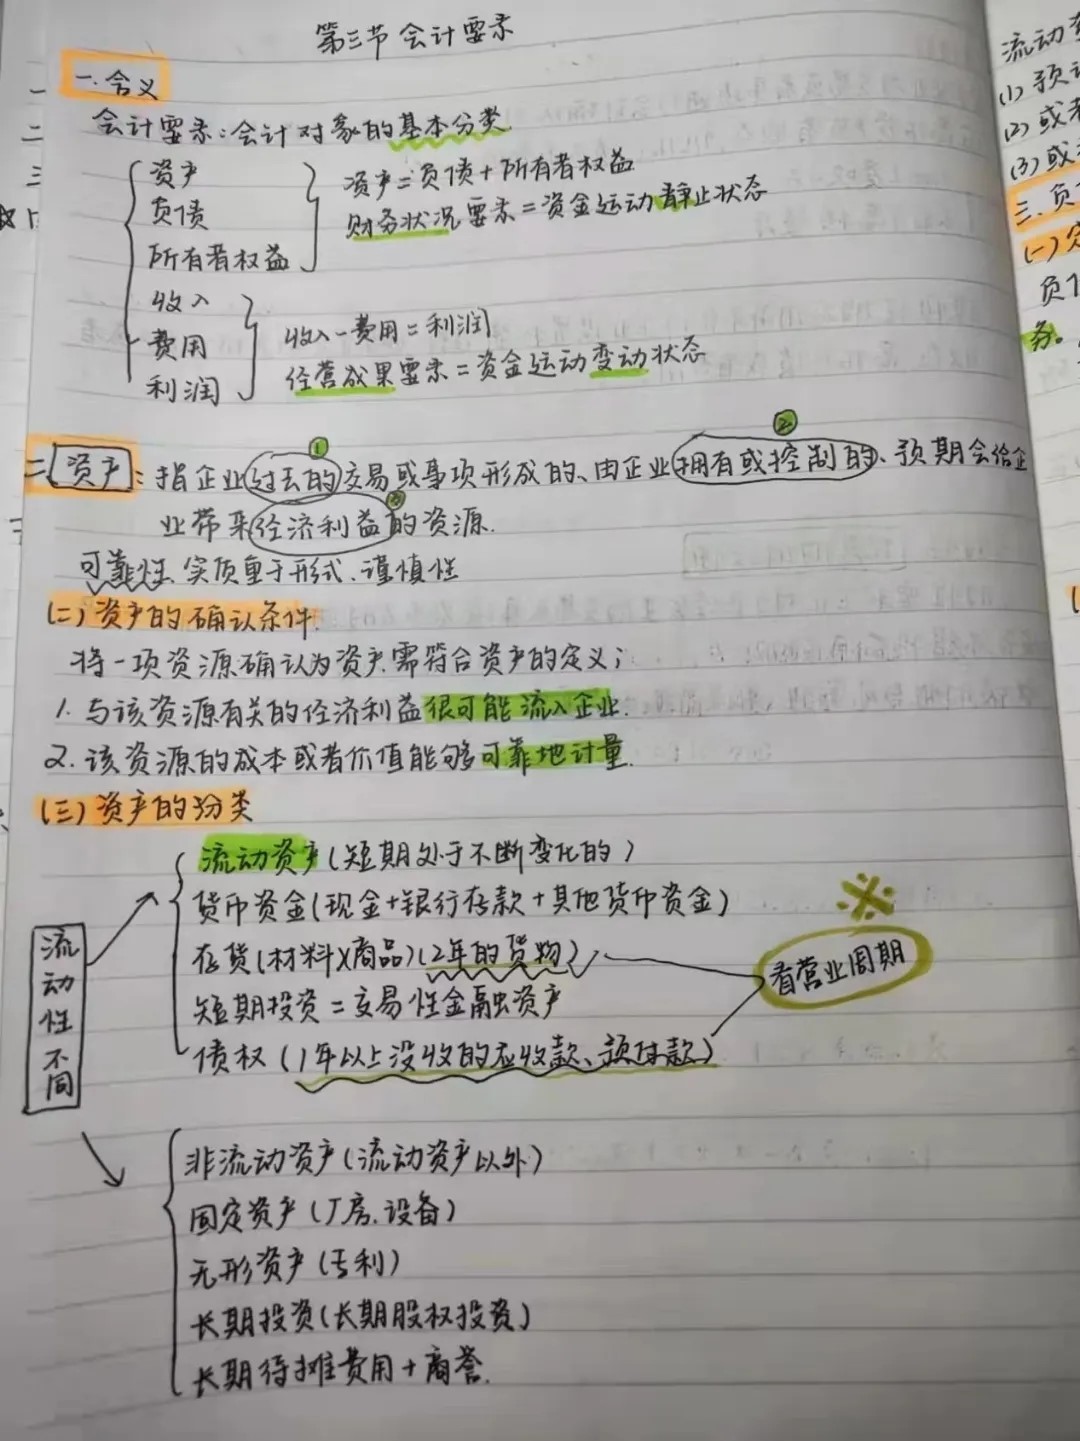 第三节 会计要素
一. 含义
会计要素：会计对象的基本分类
资产
负债
所有者权益
资产=负债+所有者权益
财务状况要素=资金运动静止状态
收入
费用
利润
收入-费用=利润
经营成果要素=资金运动变动状态
① ②
二 资产：指企业过去的交易或事项形成的、由企业拥有或控制的、预期会给企
③
业带来经济利益的资源.
可靠性、实质重于形式、谨慎性
(二)资产的确认条件.
将一项资源确认为资产,需符合资产的定义；
1. 与该资源有关的经济利益很可能流入企业.
2. 该资源的成本或者价值能够可靠地计量.
(三)资产的分类
流动性不同
流动资产(短期处于不断变化的)
货币资金(现金+银行存款+其他货币资金)
存货(材料)(商品)(2年的货物)
看营业周期
短期投资=交易性金融资产
债权(1年以上没收的应收款、预付款)
非流动资产(流动资产以外)
固定资产(厂房.设备)
无形资产(专利)
长期投资(长期股权投资)
长期待摊费用+商誉.
流动
(1)预
(2)或
(3)或
三.负
(一)
负
务。